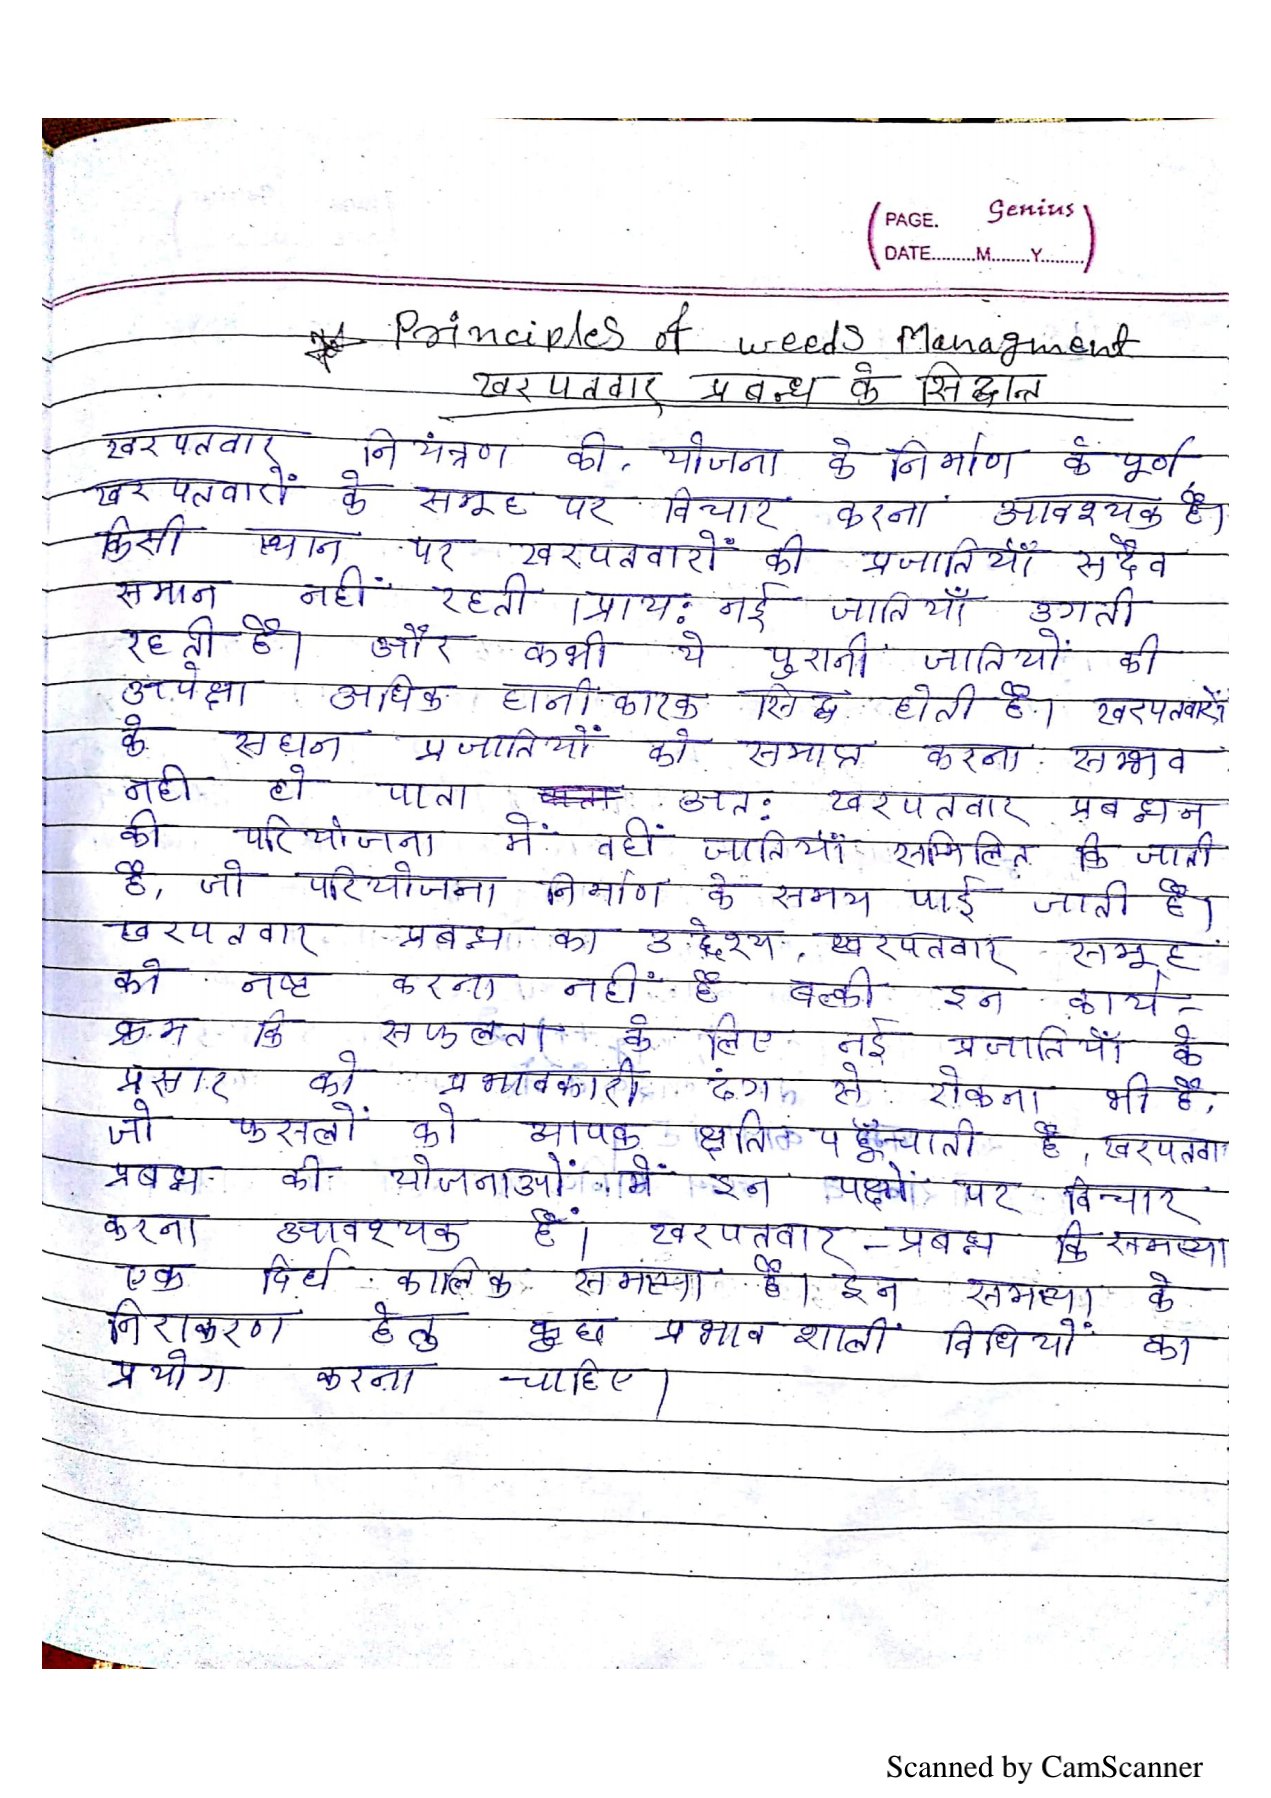 PAGE. Genius
DATE.........M........Y.........
Principles of weeds Managment
खरपतवार प्रबन्ध के सिद्धान्त
खरपतवार नियंत्रण की योजना के निर्माण के पूर्ण
खरपतवारों के समूह पर विचार करना आवश्यक है।
किसी स्थान पर खरपतवारों की प्रजातियाँ सदैव
समान नहीं रहती। प्रायः नई जातियाँ उगती
रहती है। और कभी ये पुरानी जातियों की
अपेक्षा अधिक हानीकारक सिद्ध होती है। खरपतवारों
के सघन प्रजातियों को समाप्त करना सम्भव
नही हो पाता अतः खरपतवार प्रबन्धन
की परियोजना में वहीं जातियाँ सम्मिलित कि जाती
है, जो परियोजना निर्माण के समय पाई जाती है।
खरपतवार प्रबन्ध का उद्देश्य, खरपतवार समूह
को नष्ट करना नहीं है बल्की इन कार्य-
क्रम कि सफलता के लिए नई प्रजातियाँ के
प्रसार को प्रभावकारी ढंग से रोकना भी है,
जो फसलों को व्यापक क्षति पहुँचाती है, खरपतवा
प्रबन्ध की योजनाओं में इन पक्षों पर विचार
करना आवश्यक हैं। खरपतवार-प्रबन्ध कि समस्या
एक दिर्घ कालिक समस्या है। इन समस्या के
निराकरण हेतु कुछ प्रभावशाली विधियों का
प्रयोग करना चाहिए।
Scanned by CamScanner